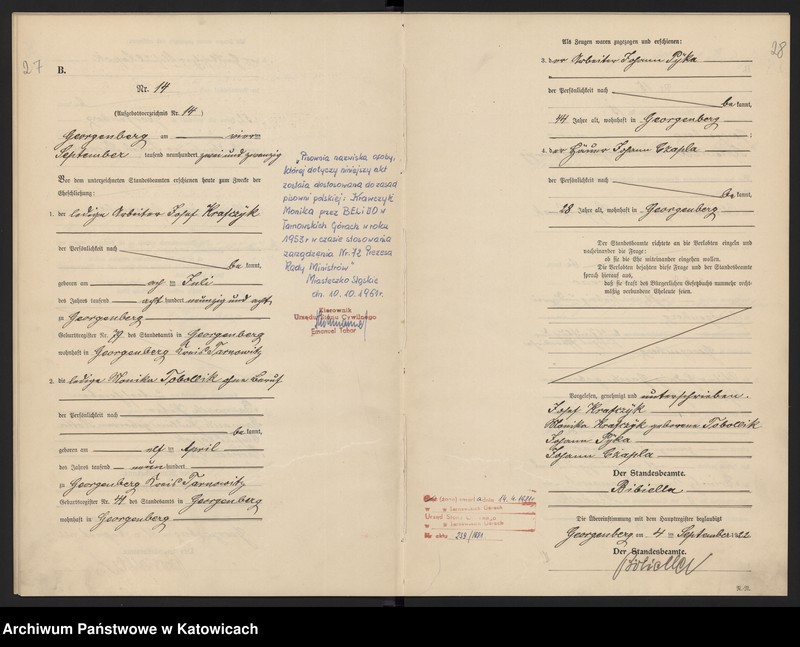 27
B.
Nr. 14
(Aufgebotsverzeichnis Nr. 14)
Georgenberg am vier
September tausend neunhundert zwei und zwanzig
Vor dem unterzeichneten Standesbeamten erschienen heute zum Zwecke der
Eheschließung:
1. der ledige Arbeiter Josef Krafczyk
der Persönlichkeit nach
be kannt,
geboren am acht ten Juli
des Jahres tausend acht hundert neunzig und acht
zu Georgenberg
Geburtsregister Nr. 79 des Standesamts in Georgenberg
wohnhaft in Georgenberg Kreis Tarnowitz
2. die ledige Monika Tobollik ohne Beruf
der Persönlichkeit nach
be kannt,
geboren am elf ten April
des Jahres tausend neun hundert
zu Georgenberg Kreis Tarnowitz
Geburtsregister Nr. 41 des Standesamts in Georgenberg
wohnhaft in Georgenberg
„Pisownia nazwiska osoby,
której dotyczy niniejszy akt
została dostosowana do zasad
pisowni polskiej: Krawczyk
Monika przez BELiBD w
Tarnowskich Górach w roku
1953 r w czasie stosowania
zarządzenia Nr. 72 Prezesa
Rady Ministrów"
Miasteczko Śląskie
dn. 10.10.1969r.
Kierownik
Urzędu Stanu Cywilnego
Emanuel Tobor
28
Als Zeugen waren zugezogen und erschienen:
3. der Arbeiter Johann Pyka
der Persönlichkeit nach
be kannt,
44 Jahre alt, wohnhaft in Georgenberg
;
4. der Häuer Johann Czapla
der Persönlichkeit nach
be kannt,
28 Jahre alt, wohnhaft in Georgenberg
Der Standesbeamte richtete an die Verlobten einzeln und
nacheinander die Frage:
ob sie die Ehe miteinander eingehen wollen.
Die Verlobten bejahten diese Frage und der Standesbeamte
sprach hierauf aus,
daß sie kraft des Bürgerlichen Gesetzbuchs nunmehr recht-
mäßig verbundene Eheleute seien.
Vorgelesen, genehmigt und unterschrieben.
Josef Krafczyk
Monika Krafczyk geborene Tobollik
Johann Pyka
Johann Czapla
Der Standesbeamte.
Bibiella
Die Übereinstimmung mit dem Hauptregister beglaubigt
Georgenberg am 4 ten September 1922.
Der Standesbeamte.
Bibiella
w Tarnowskich Górach
Nr aktu
Archiwum Państwowe w Katowicach